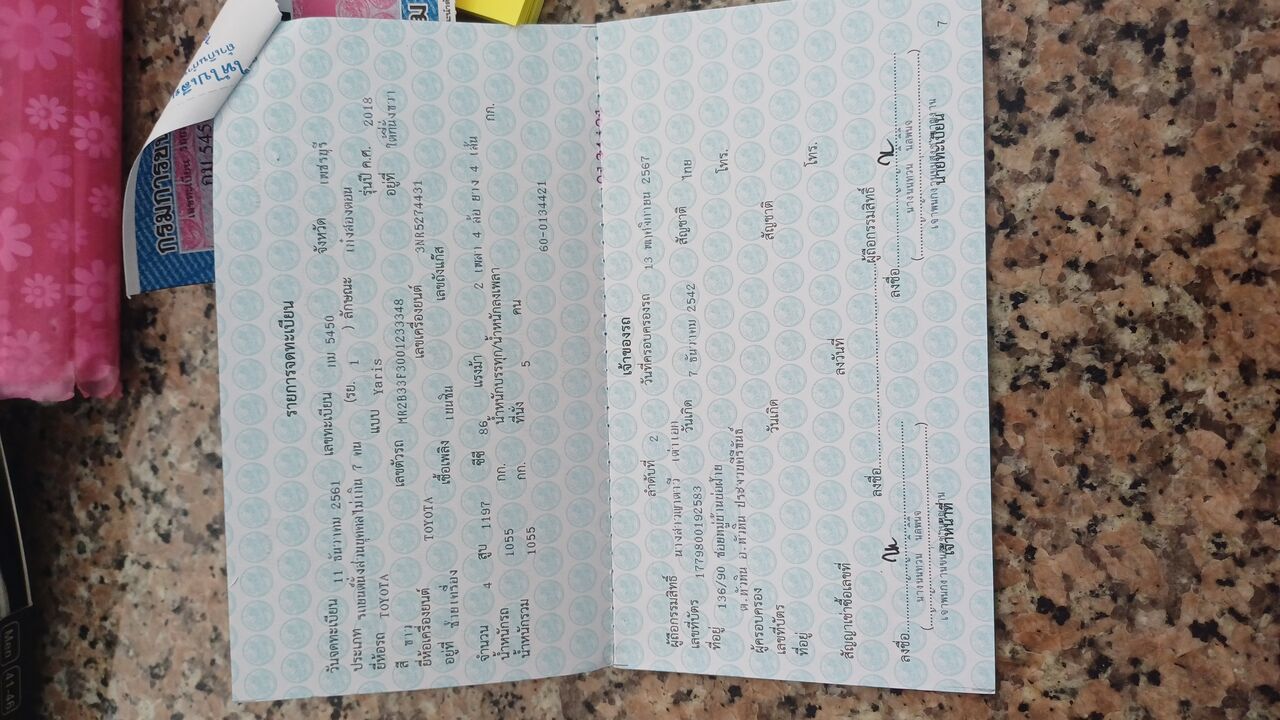 รายการจดทะเบียน
วันจดทะเบียน 11 ธันวาคม 2561 เลขทะเบียน กม 5450 จังหวัด เพชรบุรี
ประเภท รถยนต์นั่งส่วนบุคคลไม่เกิน 7 คน (รย. 1 ) ลักษณะ เก๋งสองตอน
ยี่ห้อรถ TOYOTA แบบ Yaris รุ่นปี ค.ศ. 2018
สี ขาว เลขตัวรถ MR2B33F3001233348 อยู่ที่ ใต้ที่นั่งขวา
ยี่ห้อเครื่องยนต์ TOYOTA เลขเครื่องยนต์ 3NR5274431
อยู่ที่ ซ้ายเครื่อง เชื้อเพลิง เบนซิน เลขถังแก๊ส
จำนวน 4 สูบ 1197 ซีซี 86 แรงม้า 2 เพลา 4 ล้อ ยาง 4 เส้น
น้ำหนักรถ 1055 กก. น้ำหนักบรรทุก/น้ำหนักลงเพลา กก.
น้ำหนักรวม 1055 กก. ที่นั่ง 5 คน 60-0134421
เจ้าของรถ
ลำดับที่ 2 วันที่ครอบครองรถ 13 พฤศจิกายน 2567
ผู้ถือกรรมสิทธิ์ นางสาวญาดาวี
เลขที่บัตร 1779800192583 วันเกิด 7 ธันวาคม 2542 สัญชาติ ไทย
ที่อยู่ 136/90 ซอยหมู่บ้านบ่อฝ้าย โทร.
ต.หัวหิน อ.หัวหิน ประจวบคีรีขันธ์
ผู้ครอบครอง
เลขที่บัตร วันเกิด สัญชาติ
ที่อยู่ โทร.
สัญญาเช่าซื้อเลขที่ ลงวันที่
ลงชื่อ ผู้ถือกรรมสิทธิ์
ลงชื่อ ลงชื่อ
เจ้าหน้าที่ นายทะเบียน
7
กรมการขน